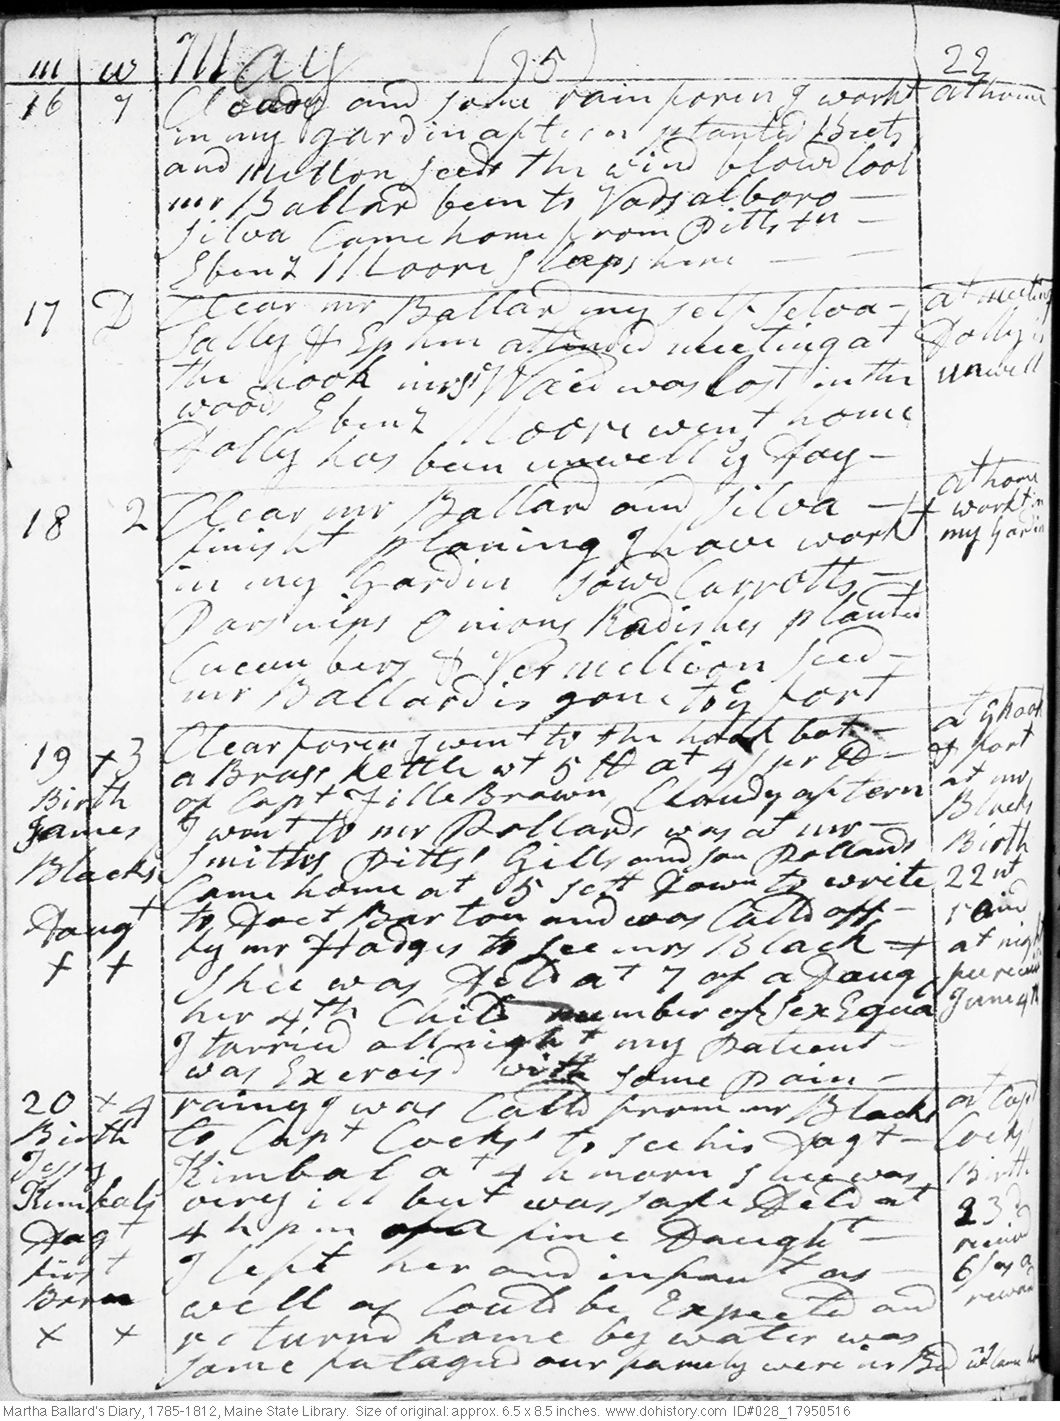 m w May (95) 22
16 7 Cloudy and some rain foren I workt at home
in my gardin aftern planted Beets
and mellon seeds the wind blowd cool
mr Ballard been to Vassalboro
Silva Came home from Pittstn
Ebenz Moore sleeps here
17 D Clear mr Ballard my self Silva at meeting
Sally & Ephm attended meeting at Dolly is
the hook mrs Ward was lost in the unwell
woods Ebenz Moore went home
Dolly has been unwell ys day
18 2 Clear mr Ballard and Silva at home
finisht planing I have workt workt in
in my Gardin sowd Carrotts my Gardin
Parsnips Onions Radishes planted
Cucumbers & Vermillion seed
mr Ballard is gone to ye fort
19 + 3 Clear foren I went to the hook bot at ye hook
a Brass kettle wt 5 lb at 4/ pr lb & fort
Birth of Capt Fille Brown Cloudy aftern at mr
James I went to mr Pollards was at mr Blacks
Smiths Pitts' Gills and son Pollards Birth
Blacks Came home at 5 sett down to write 22nt
Daugt to Doct Barton and was Calld off
+ + by mr Hodges to see mrs Black at night
Shee was Deld at 7 of a Daug
her 4th Child number of Sex Equal June 4th
I tarried all night my Patient
was Exercisd with some Pain
20 + 4 rainy I was Calld from mr Blacks at Capt
Birth to Capt Cocks' to see his Dagt Cocks'
Jessy Kimbal at 4 h morn shee was Birth
Kimbals very ill but was safe Deld at
Dagt 4 h pm of a fine Daught 23d
first I left her and infant as
Born well as Could be Expected and reward
+ + returnd home by water was
some fatagud our famely were in Bed
Martha Ballard's Diary, 1785-1812, Maine State Library. Size of original: approx. 6.5 x 8.5 inches. www.dohistory.com ID#028_17950516